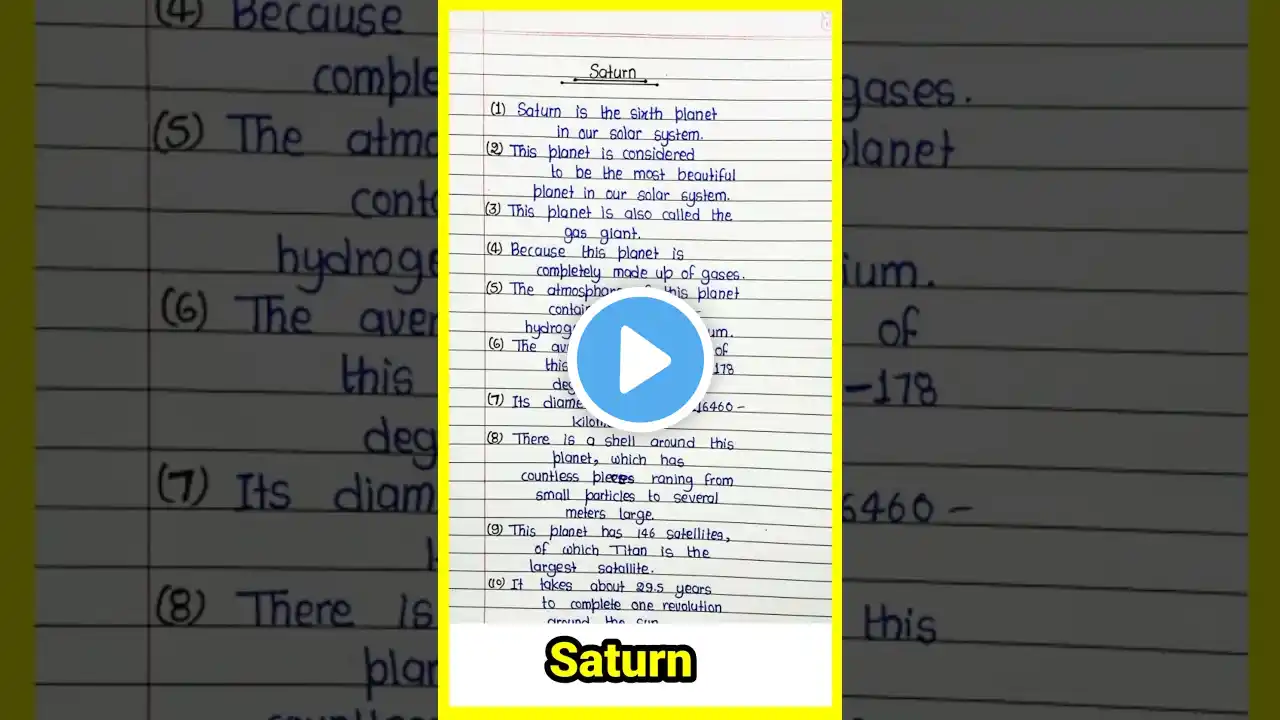 Saturn
(1) Saturn is the sixth planet
in our solar system.
(2) This planet is considered
to be the most beautiful
planet in our solar system.
(3) This planet is also called the
gas giant.
(4) Because this planet is
completely made up of gases.
(5) The this planet
(6) The of
this 178
(7) Its 16460 -
(8) There is a shell around this
planet, which has
countless pieces raning from
small particles to several
meters large.
(9) This planet has 146 satellites,
of which Titan is the
largest satallite.
(10) It takes about 29.5 years
to complete one revolution
around the sun
Saturn